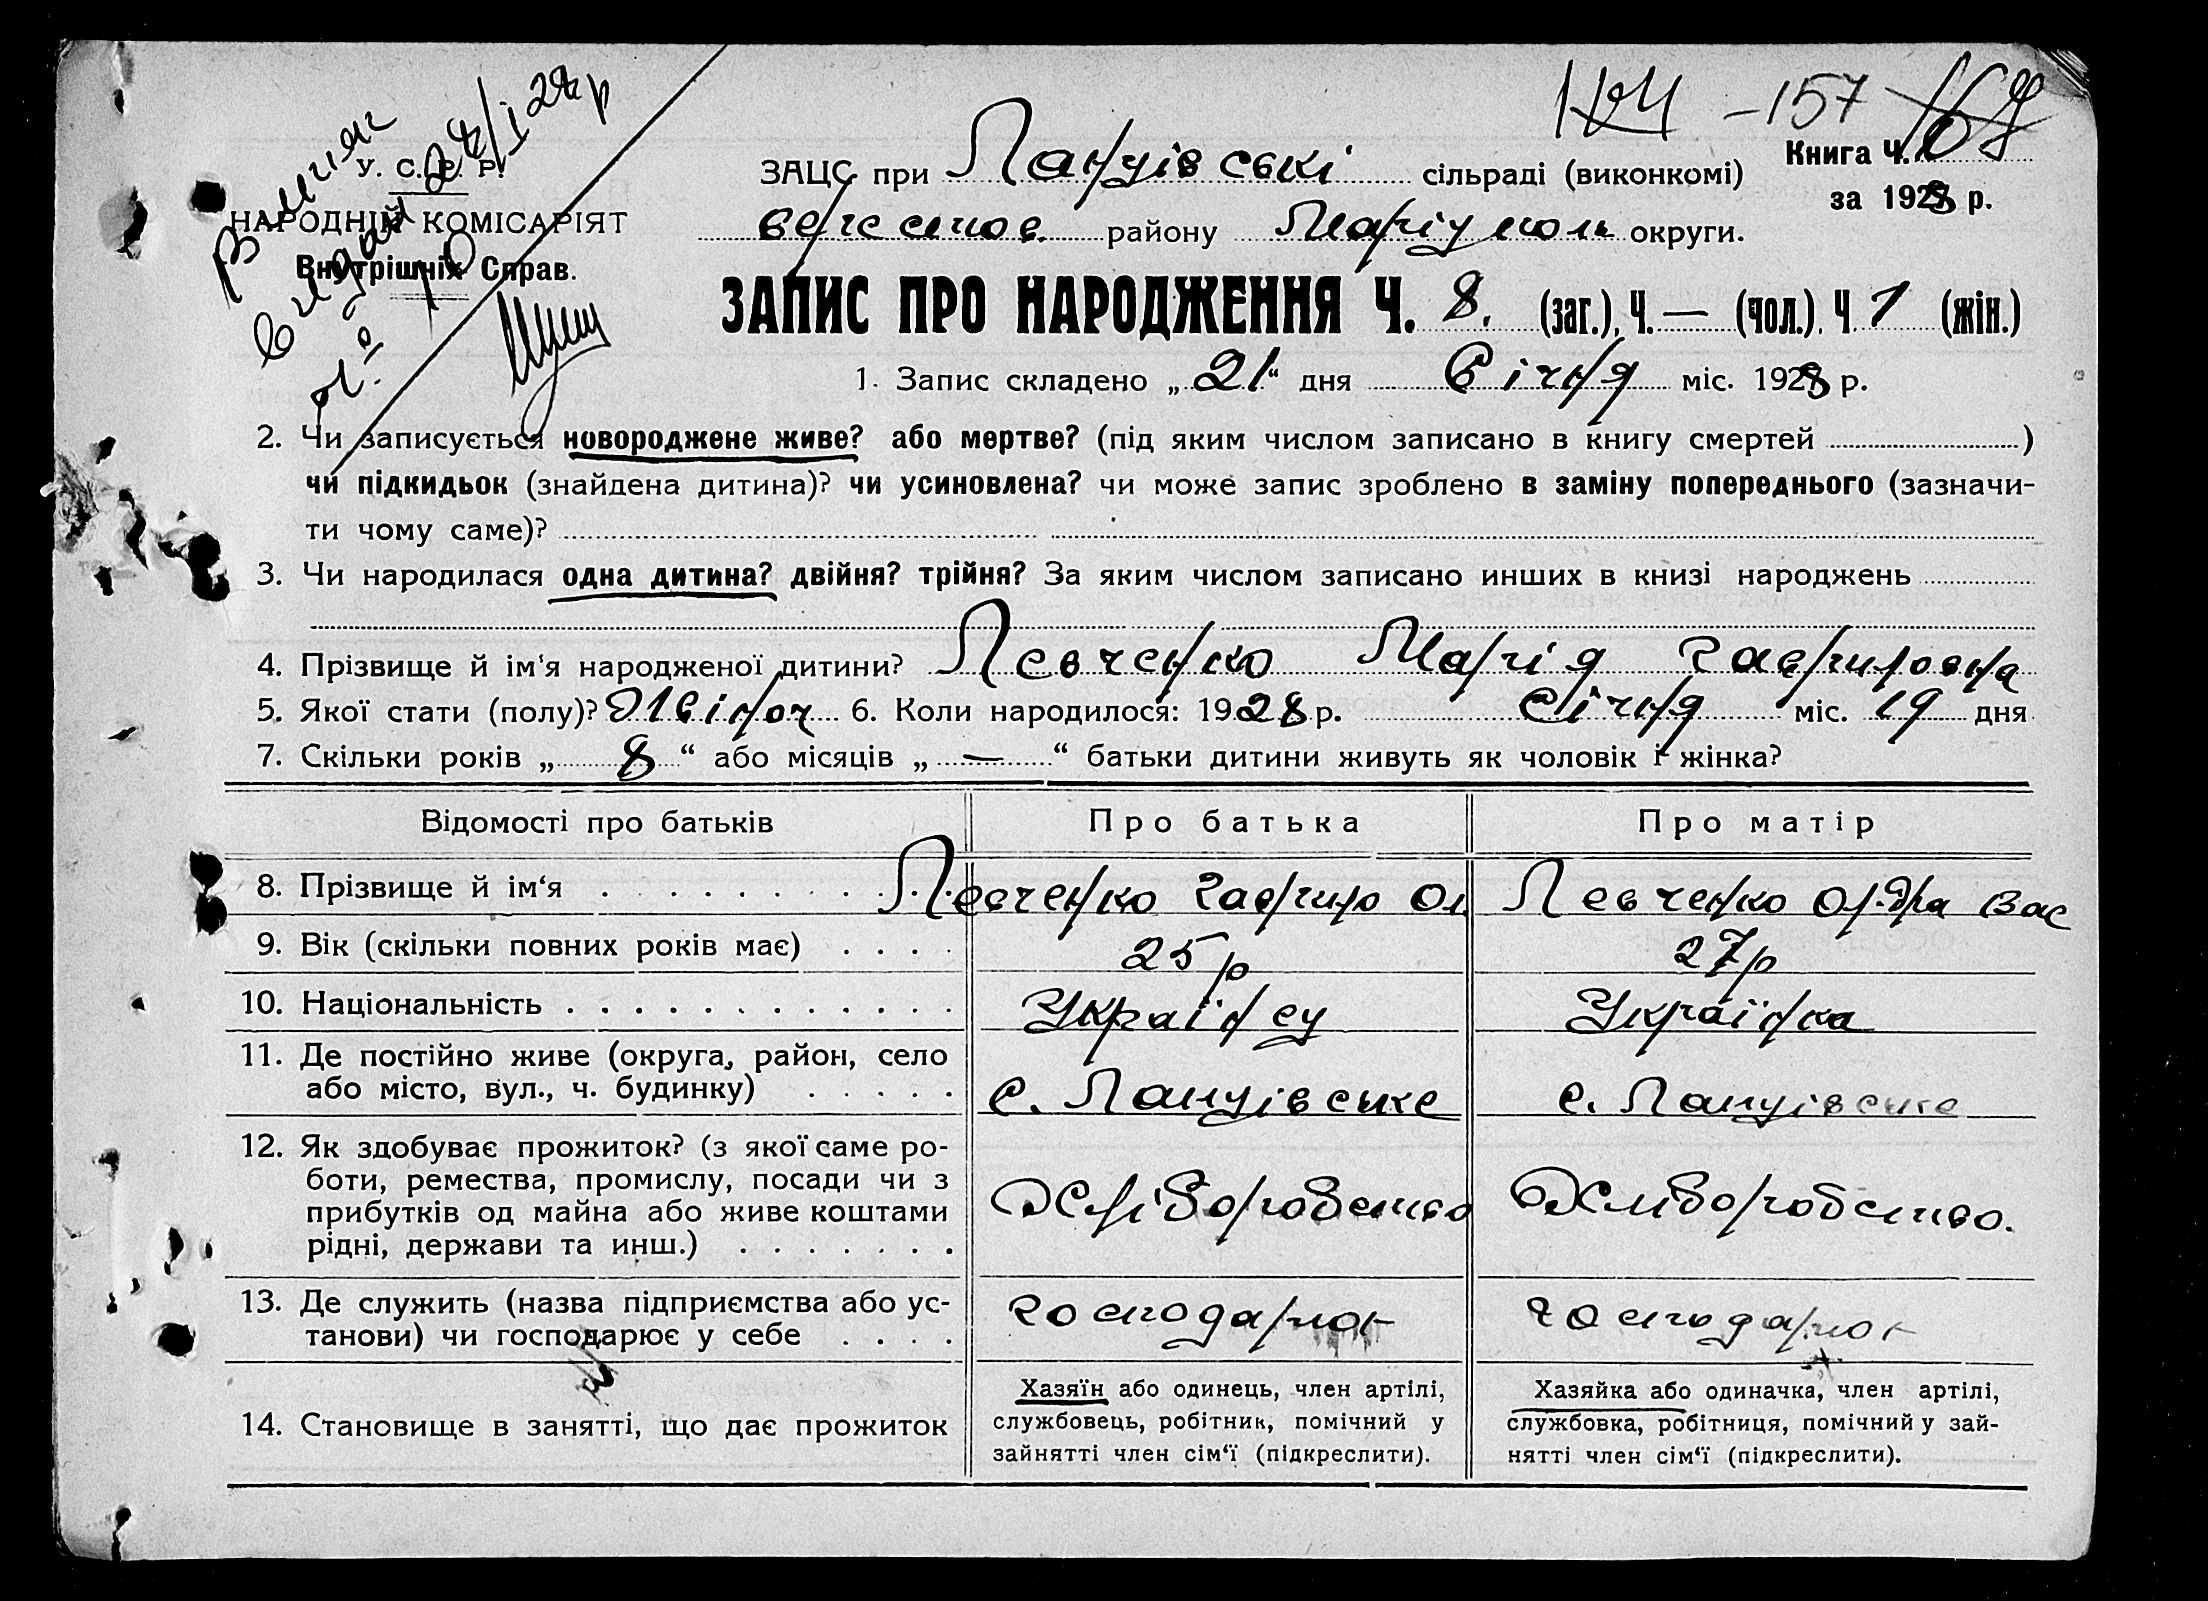 Витяг
видан 24/I 28 р
№ 10
174 -157 168
У. С. Р. Р.
НАРОДНІЙ КОМІСАРІЯТ
Внутрішніх Справ.
ЗАЦС при сільраді (виконкомі)
Книга Ч.
за 1928 р.
району Маріупольс округи.
ЗАПИС ПРО НАРОДЖЕННЯ Ч. 8. (заг.), Ч. — (чол.). Ч 1 (жін.)
1. Запис складено „ 21 “ дня Січня міс. 1928 р.
2. Чи записується новороджене живе? або мертве? (під яким числом записано в книгу смертей )
чи підкидьок (знайдена дитина)? чи усиновлена? чи може запис зроблено в заміну попереднього (зазначи-
ти чому саме)?
3. Чи народилася одна дитина? двійня? трійня? За яким числом записано инших в книзі народжень
4. Прізвище й ім'я народженої дитини? Левченко Марія Гавриловна
5. Якої стати (полу)? Жіноч 6. Коли народилося: 1928 р. Січня міс. 19 дня
7. Скільки років „ 8 “ або місяців „ — “ батьки дитини живуть як чоловік і жінка?
Відомості про батьків Про батька Про матір
8. Прізвище й ім‘я Левченко Гаврило Ол Левченко Ол-дра Вас
9. Вік (скільки повних років має) 25 р 27 р
10. Національність Українец Українка
11. Де постійно живе (округа, район, село
або місто, вул., ч. будинку) с. Ланцівське с. Ланцівське
12. Як здобуває прожиток? (з якої саме ро-
боти, ремества, промислу, посади чи з
прибутків од майна або живе коштами
рідні, держави та инш.) Хліборобство Хліборобство.
13. Де служить (назва підприємства або ус-
танови) чи господарює у себе
14. Становище в занятті, що дає прожиток
Хазяїн або одинець, член артілі,
службовець, робітник, помічний у
зайнятті член сім‘ї (підкреслити).
Хазяйка або одиначка, член артілі,
службовка, робітниця, помічний у зай-
нятті член сім‘ї (підкреслити).